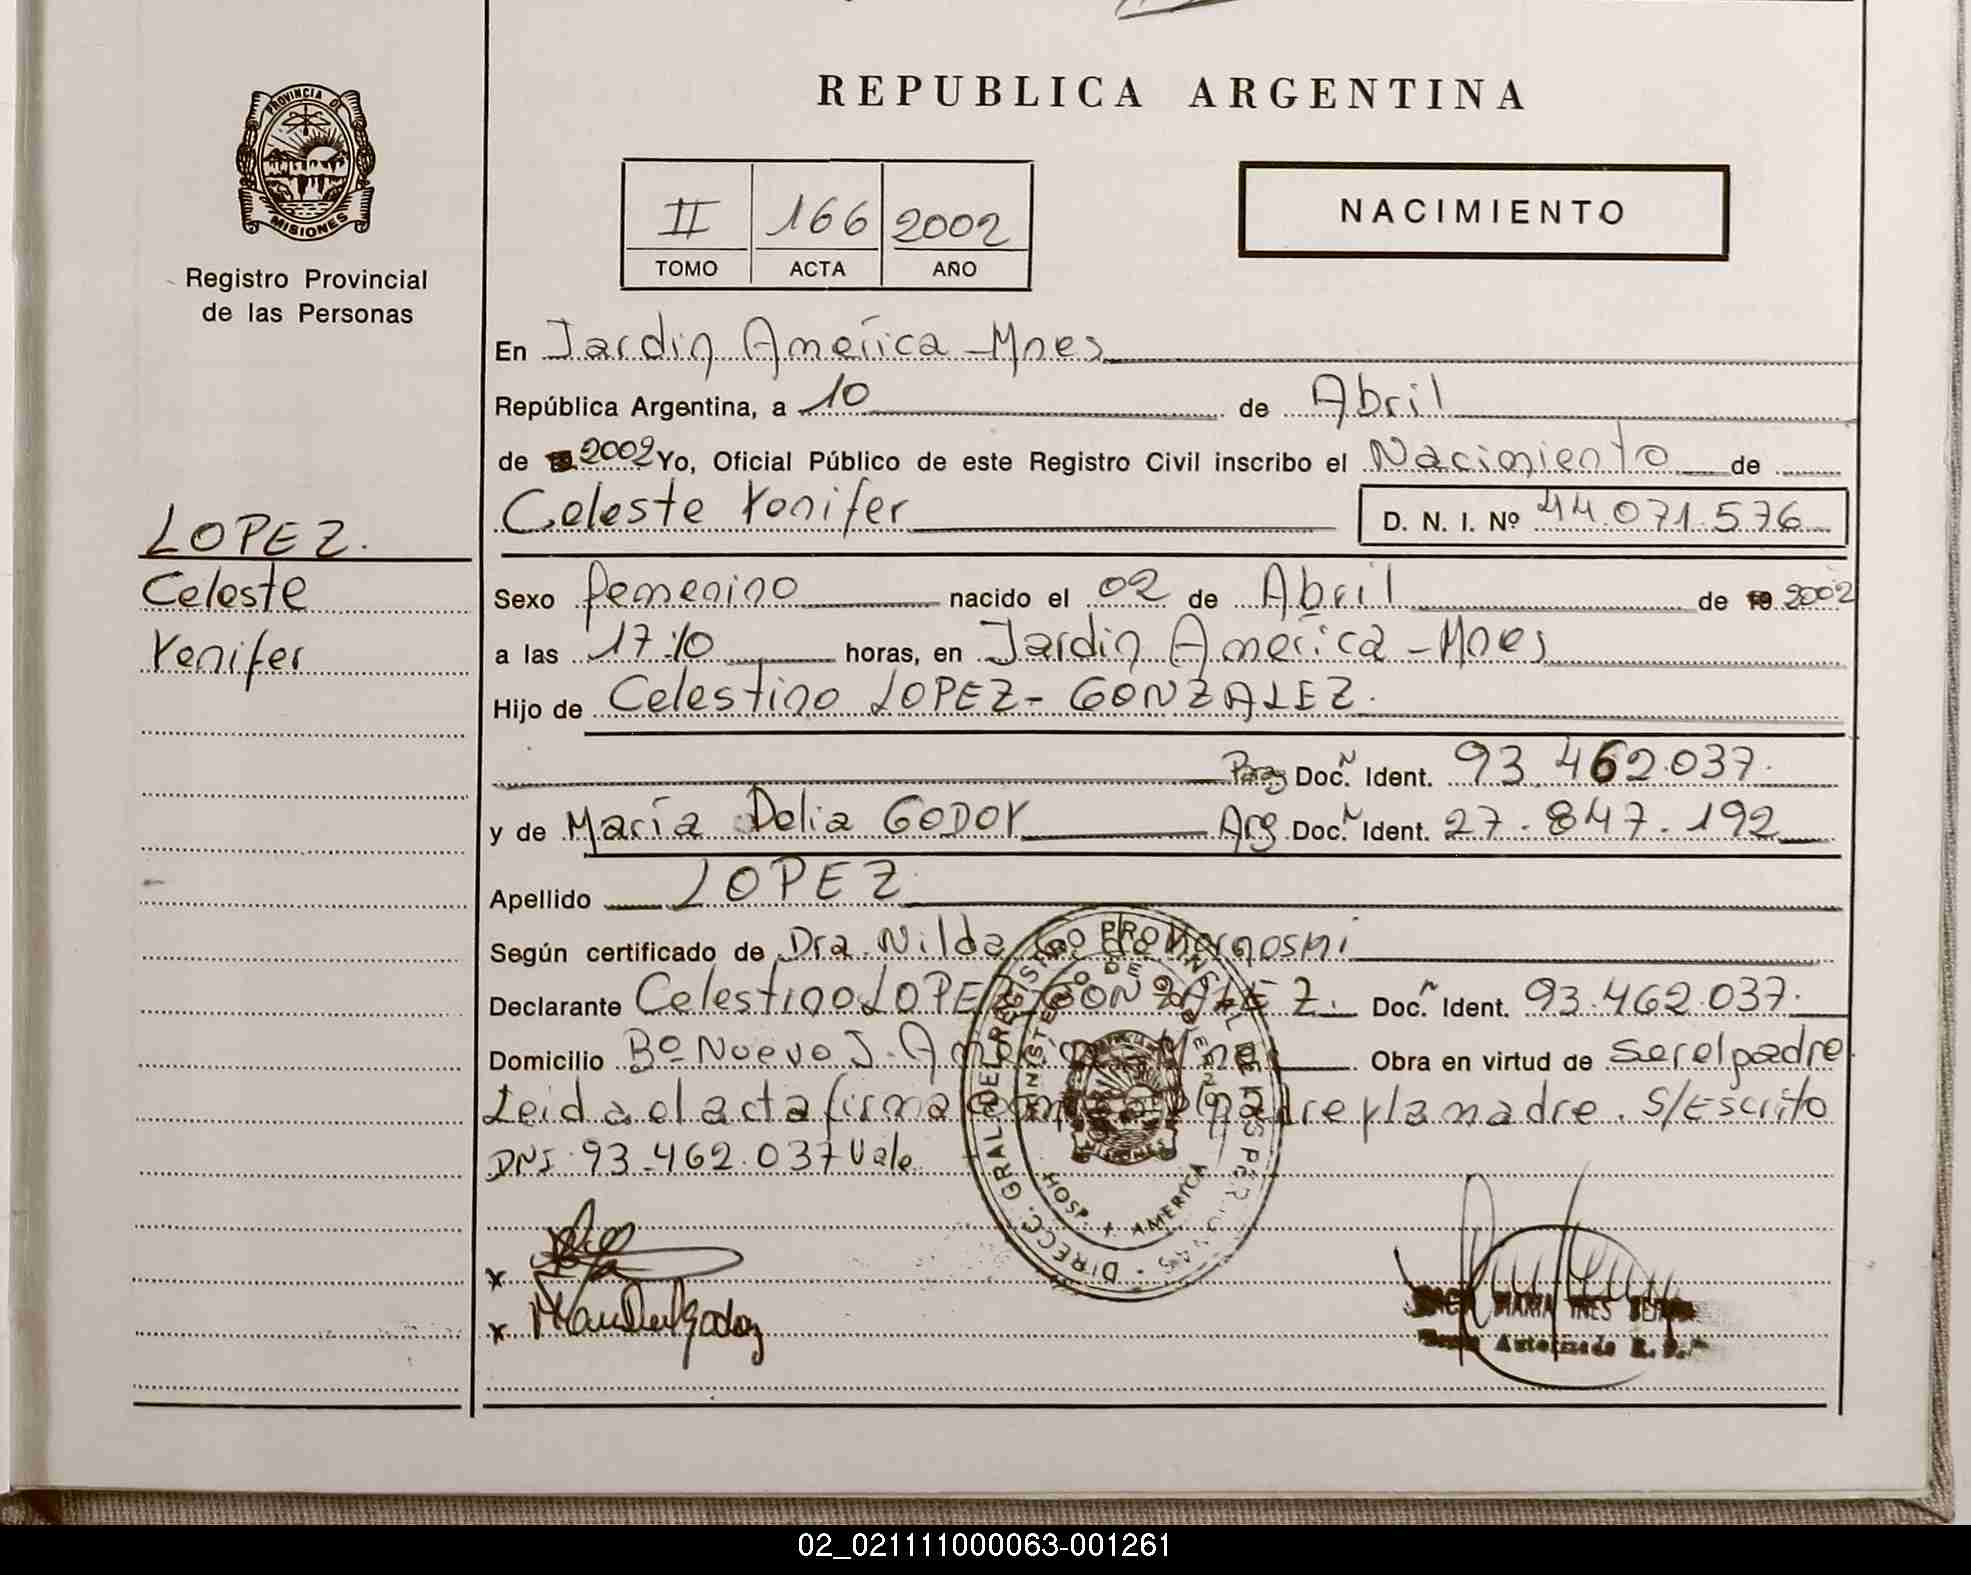 REPUBLICA ARGENTINA
PROVINCIA DE
MISIONES
Registro Provincial
de las Personas
II 166 2002
TOMO ACTA AÑO
NACIMIENTO
En Jardin América - Mnes
República Argentina, a 10 de Abril
de 2002 Yo, Oficial Público de este Registro Civil inscribo el Nacimiento de
Celeste Yenifer D. N. I. Nº 44.071.576
LOPEZ.
Celeste
Yenifer
Sexo femenino nacido el 02 de Abril de 19 2002
a las 17:10 horas, en Jardin América - Mnes
Hijo de Celestino LOPEZ - GONZALEZ.
Doc. Ident. 93.462.037.
y de María Delia GODOY Arg Doc. Ident. 27.847.192
Apellido LOPEZ
Según certificado de Dra. Nilda
Declarante Celestino LOPEZ GONZALEZ. Doc. Ident. 93.462.037.
Domicilio Bº Nuevo J. América Mnes Obra en virtud de ser el padre
Leida el acta firma el padre y la madre. S/Escrito
DNI 93.462.037 Vale
DIRECC. GRAL DEL REGISTRO PROVINCIAL DE LAS PERSONAS
MINISTERIO DE GOBIERNO
MISIONES
HOSP. J. AMERICA
x
x
MARIA INES
Autorizado R. P.
02_021111000063-001261